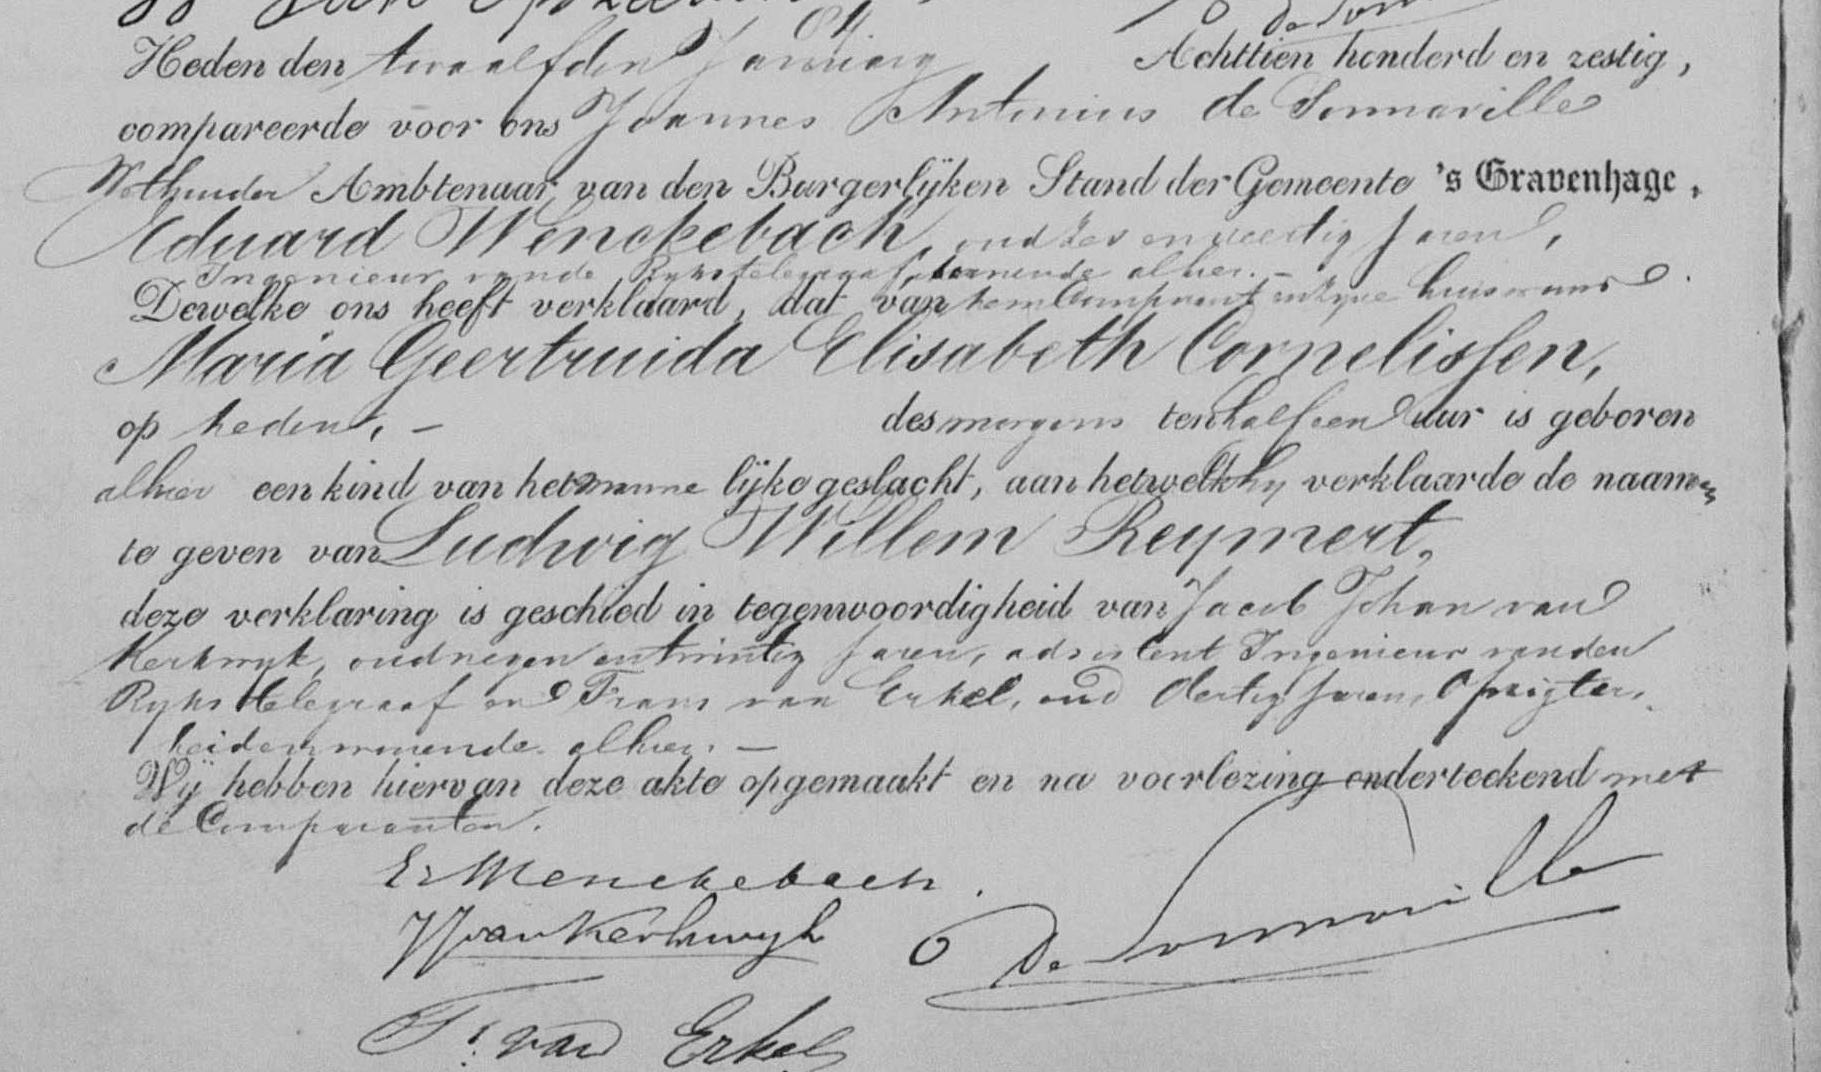 84
de Sonn
Heden den twaalfden Januarij Achttien honderd en zestig,
compareerde voor ons Joannes Antonius de Sonnaville
Wethouder Ambtenaar van den Burgerlijken Stand der Gemeente 's Gravenhage,
Eduard Wenckebach, oud zes en veertig Jaren,
Ingenieur van de Ryks telegraaf, wonende alhier. —
Dewelke ons heeft verklaard, dat van hem Comparant en zyne huisvrouw
Maria Geertruida Elisabeth Cornelissen,
op heden, — des morgens ten half een uur is geboren
alhier een kind van het manne lijke geslacht, aan hetwelk hy verklaarde de naamen
te geven van Ludwig Willem Reymert,
deze verklaring is geschied in tegenwoordigheid van Jacob Johan van
Kerkwyk, oud negen en twintig Jaren, adsistent Ingenieur van den
Ryks telegraaf en Frans van Erkel, oud dertig Jaren, Opzigter,
beiden wonende alhier. —
Wij hebben hiervan deze akte opgemaakt en na voorlezing onderteekend met
de Comparanten.
Ed Wenckebach.
JJ van Kerkwyk
De Sonnaville
Fs. van Erkel